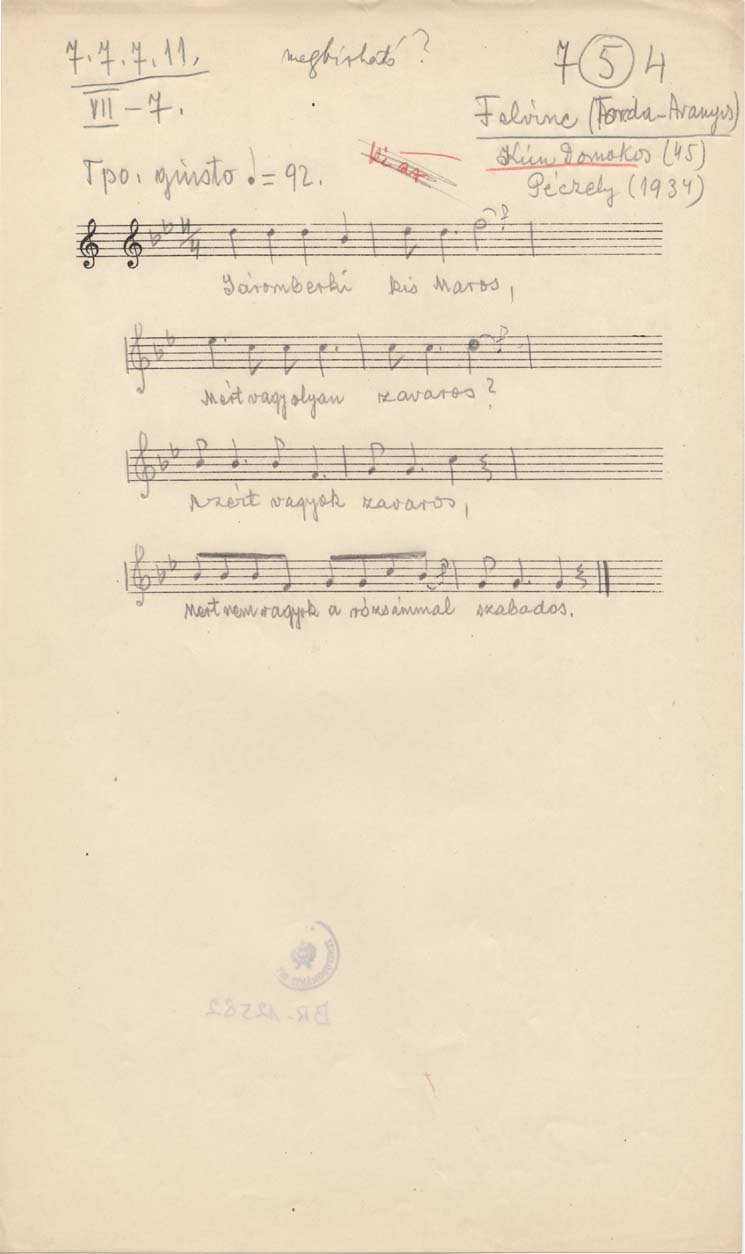 7.7.7.11.
VII-7.
megbízható?
7 5 4
Felvinc (Torda-Aranyos)
Kún Domokos (45)
Péczely (1934)
ki az
Tpo. giusto ♩= 92.
4/4
Járomberki kis Maros,
Mért vagy olyan zavaros?
Azért vagyok zavaros,
Mert nem vagyok a rózsámmal szabados.
BR-12582